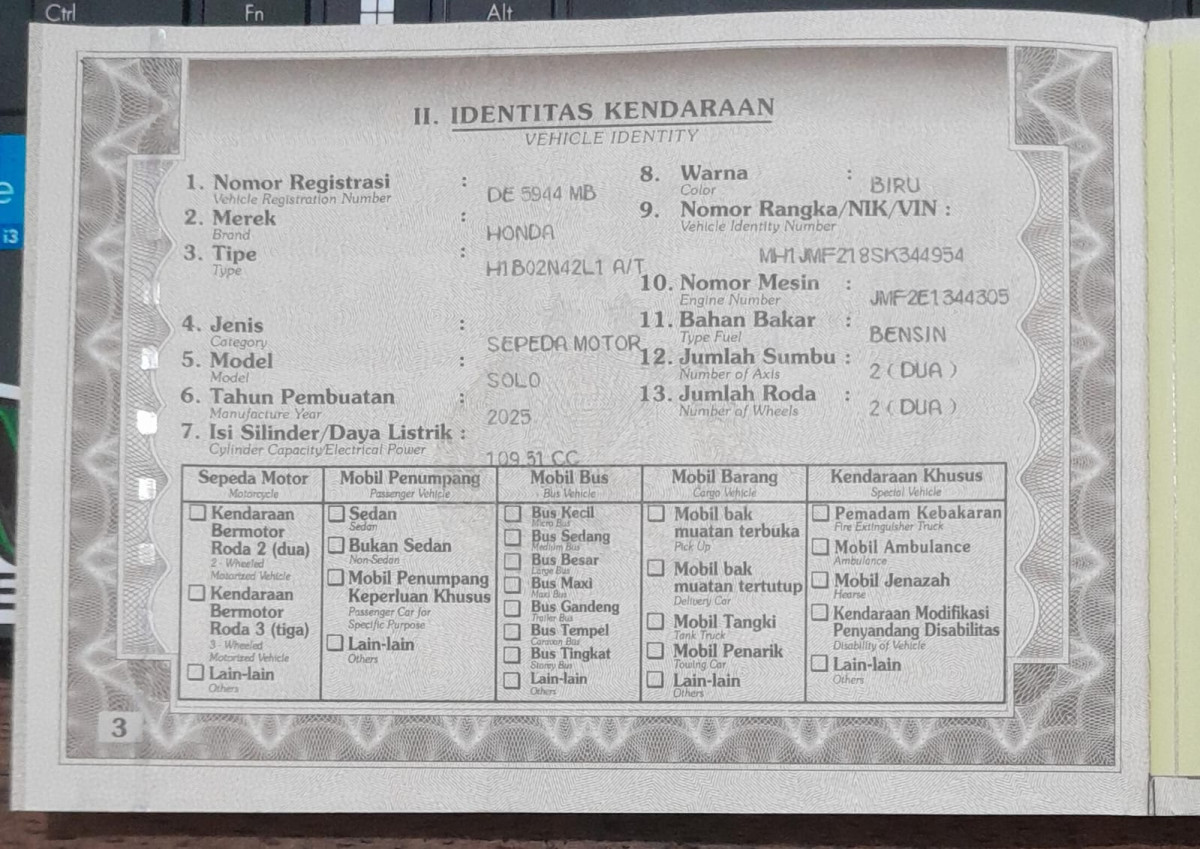 Ctrl
Fn
Alt
e
i3
II. IDENTITAS KENDARAAN
VEHICLE IDENTITY
1. Nomor Registrasi : DE 5944 MB
Vehicle Registration Number
2. Merek : HONDA
Brand
3. Tipe : H1B02N42L1 A/T
Type
4. Jenis : SEPEDA MOTOR
Category
5. Model : SOLO
Model
6. Tahun Pembuatan : 2025
Manufacture Year
7. Isi Silinder/Daya Listrik : 109.51 CC
Cylinder Capacity/Electrical Power
8. Warna : BIRU
Color
9. Nomor Rangka/NIK/VIN :
Vehicle Identity Number
MH1JMF218SK344954
10. Nomor Mesin : JMF2E1344305
Engine Number
11. Bahan Bakar : BENSIN
Type Fuel
12. Jumlah Sumbu : 2 ( DUA )
Number of Axis
13. Jumlah Roda : 2 ( DUA )
Number of Wheels
Sepeda Motor
Motorcycle
Kendaraan
Bermotor
Roda 2 (dua)
2 - Wheeled
Motorized Vehicle
Kendaraan
Bermotor
Roda 3 (tiga)
3 - Wheeled
Motorized Vehicle
Lain-lain
Others
Mobil Penumpang
Passenger Vehicle
Sedan
Sedan
Bukan Sedan
Non-Sedan
Mobil Penumpang
Keperluan Khusus
Passenger Car for
Specific Purpose
Lain-lain
Others
Mobil Bus
Bus Vehicle
Bus Kecil
Micro Bus
Bus Sedang
Medium Bus
Bus Besar
Large Bus
Bus Maxi
Maxi Bus
Bus Gandeng
Trailer Bus
Bus Tempel
Caravan Bus
Bus Tingkat
Storey Bus
Lain-lain
Others
Mobil Barang
Cargo Vehicle
Mobil bak
muatan terbuka
Pick Up
Mobil bak
muatan tertutup
Delivery Car
Mobil Tangki
Tank Truck
Mobil Penarik
Towing Car
Lain-lain
Others
Kendaraan Khusus
Special Vehicle
Pemadam Kebakaran
Fire Extinguisher Truck
Mobil Ambulance
Ambulance
Mobil Jenazah
Hearse
Kendaraan Modifikasi
Penyandang Disabilitas
Disability of Vehicle
Lain-lain
Others
3